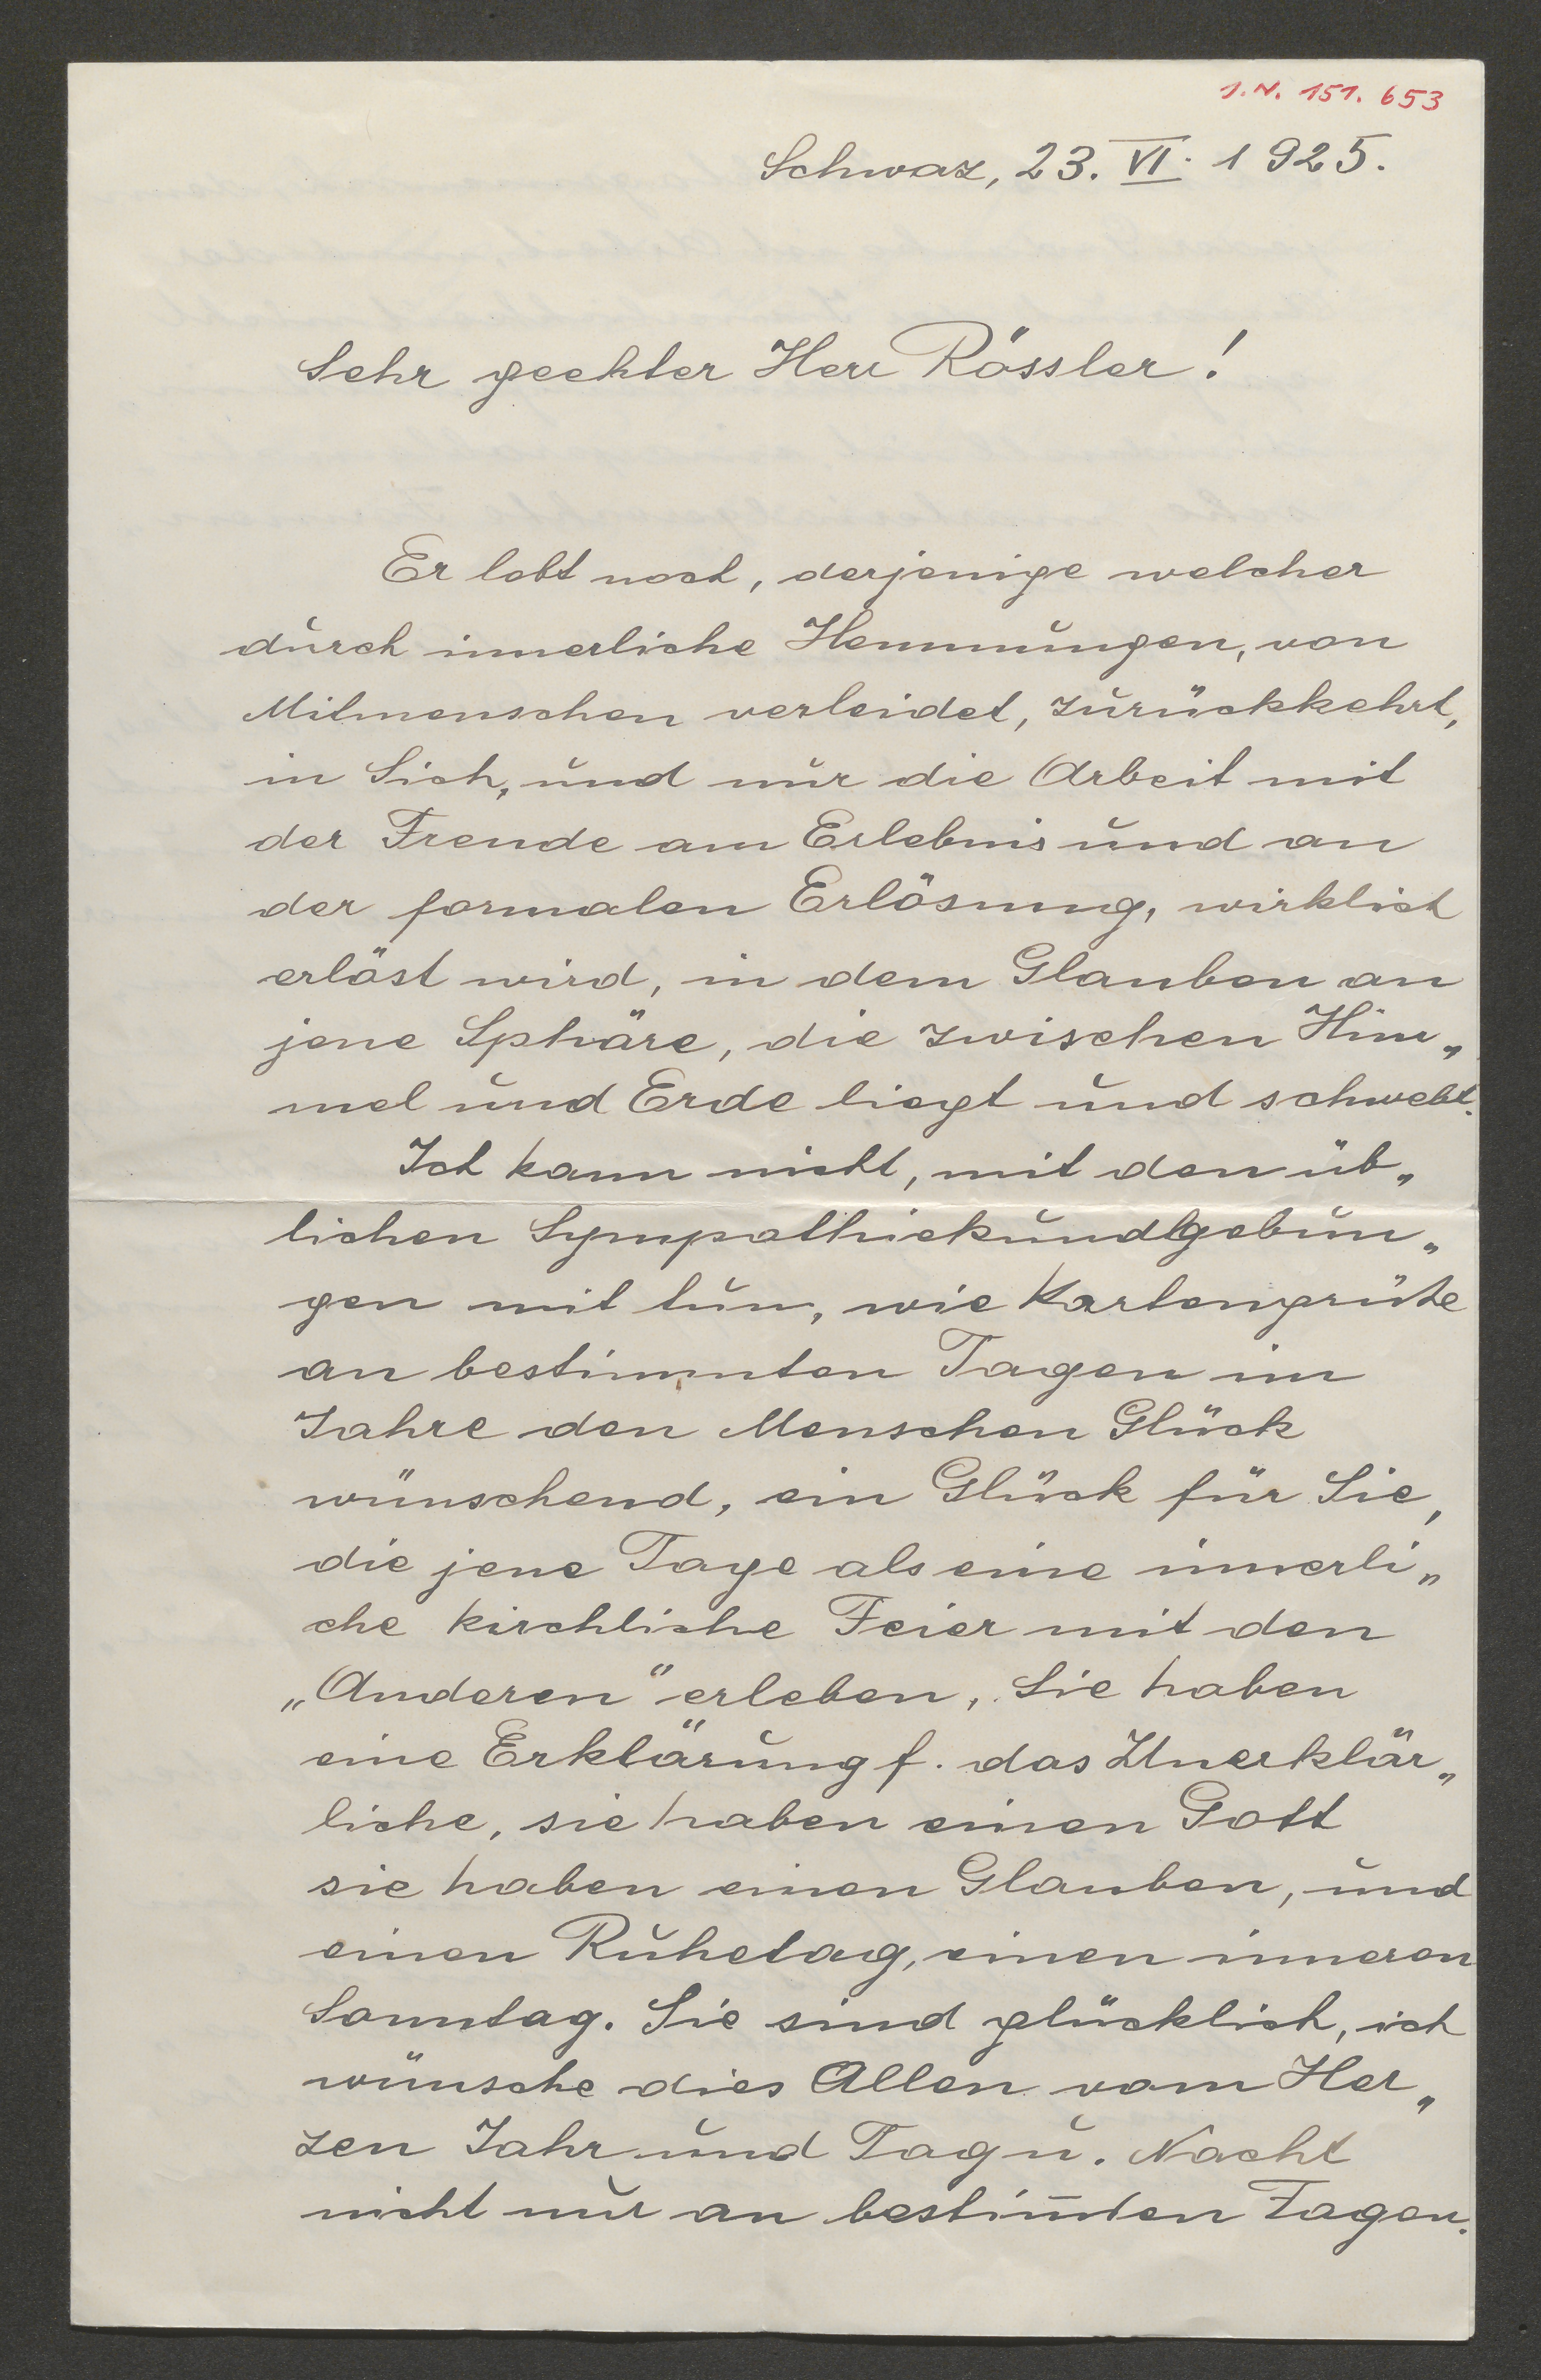 I.N. 151.653
Schwaz, 23. VI. 1925.
Sehr geehter Herr Rössler!
Er lebt noch, derjenige welcher
durch innerliche Hemmungen, von
Mitmenschen verleidet, zurückkehrt,
in Sich, und nur die Arbeit mit
der Freude am Erlebnis und an
der formalen Erlösung, wirklich
erlöst wird, in dem Glauben an
jene Sphäre, die zwischen Him„
mel und Erde liegt und schwebt.
Ich kann nicht, mit den üb„
lichen Sympathiekundgebun„
gen mit tun, wie Kartengrüße
an bestimmten Tagen im
Jahre den Menschen Glück
wünschend, ein Glück für Sie,
die jene Tage als eine innerli„
che kirchliche Feier mit den
„Anderen“ erleben, Sie haben
eine Erklärung f. das Unerklär„
liche, sie haben einen Gott
sie haben einen Glauben, und
einen Ruhetag, einen inneren
Sonntag. Sie sind glücklich, ich
wünsche dies Allen vom Her„
zen Jahr und Tag u. Nacht
nicht nur an bestim̄ten Tagen.